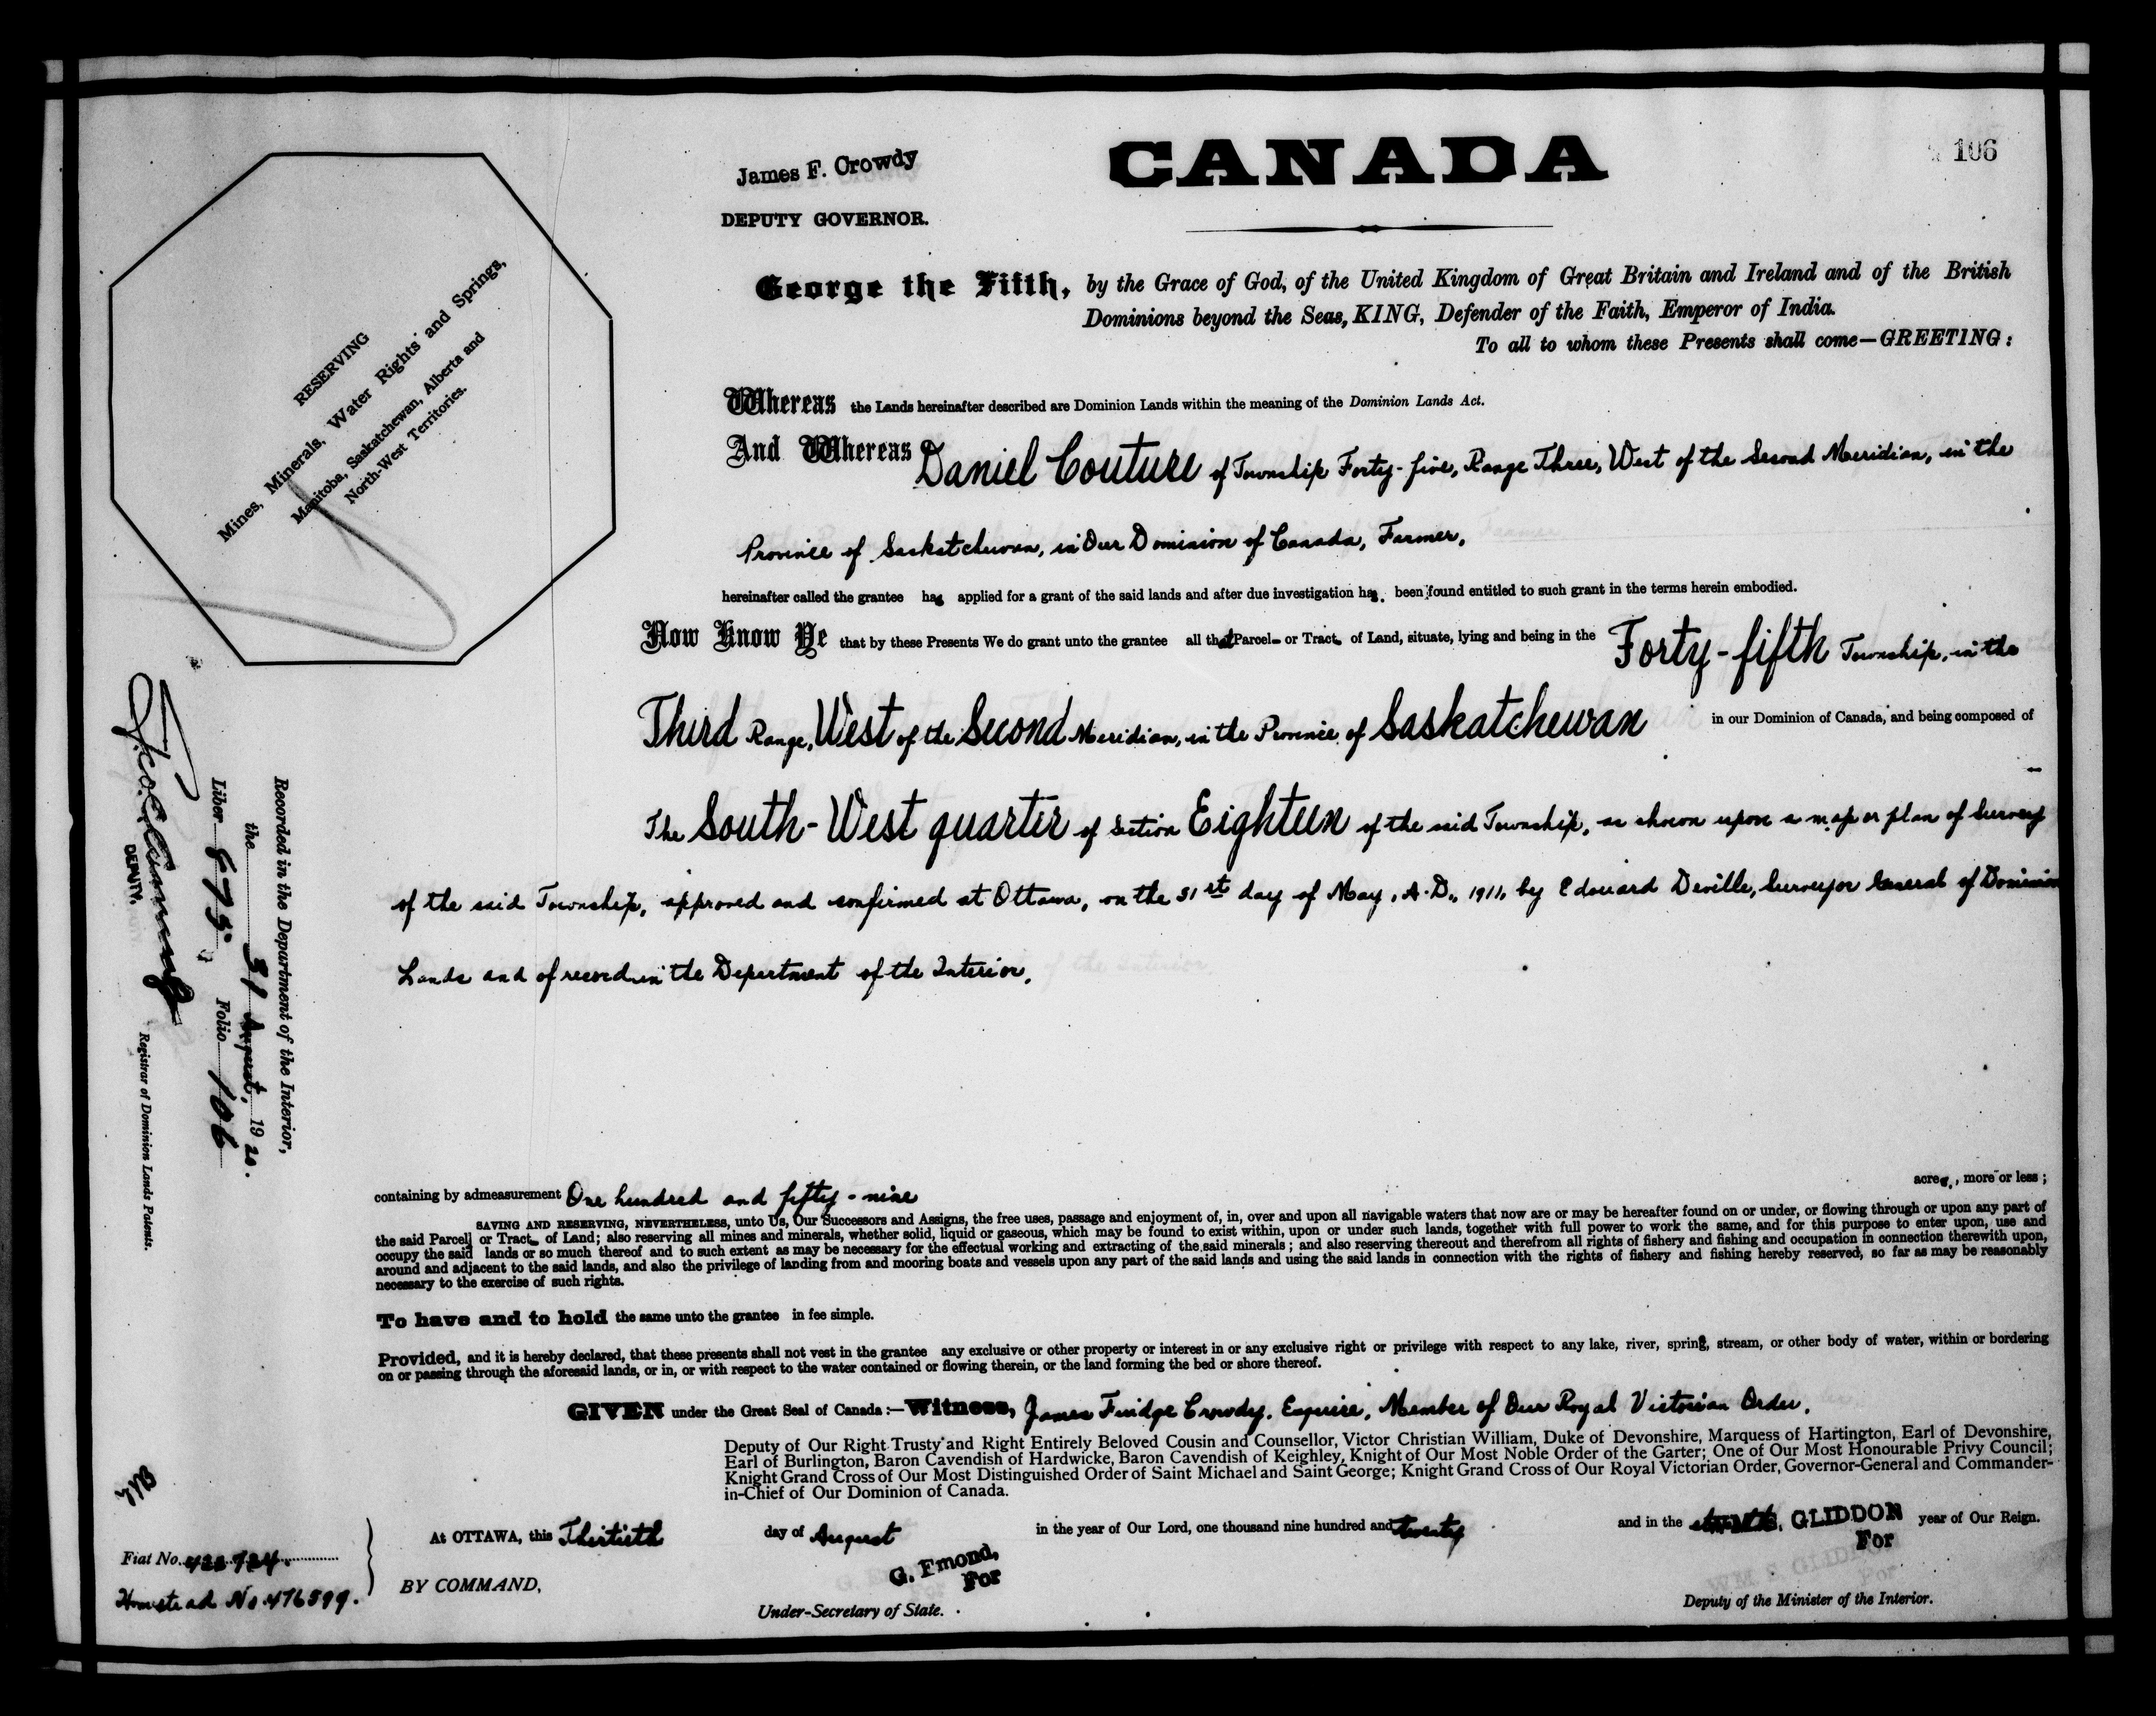 106
James F. Crowdy
DEPUTY GOVERNOR.
CANADA
George the Fifth, by the Grace of God, of the United Kingdom of Great Britain and Ireland and of the British
Dominions beyond the Seas, KING, Defender of the Faith, Emperor of India.
To all to whom these Presents shall come—GREETING:
RESERVING
Mines, Minerals, Water Rights and Springs,
Manitoba, Saskatchewan, Alberta and
North-West Territories.
Whereas the Lands hereinafter described are Dominion Lands within the meaning of the Dominion Lands Act.
And Whereas Daniel Couture of Township Forty-five, Range Three, West of the Second Meridian, in the
Province of Saskatchewan, in Our Dominion of Canada, Farmer,
hereinafter called the grantee has applied for a grant of the said lands and after due investigation has been found entitled to such grant in the terms herein embodied.
Now Know Ye that by these Presents We do grant unto the grantee all that Parcel or Tract of Land, situate, lying and being in the Forty-fifth Township, in the
Third Range, West of the Second Meridian, in the Province of Saskatchewan in our Dominion of Canada, and being composed of
The South-West quarter of Section Eighteen of the said Township, as shown upon a map or plan of Survey
of the said Township, approved and confirmed at Ottawa, on the 31st day of May, A.D., 1911, by Edouard Deville, Surveyor General of Dominion
Lands and of record in the Department of the Interior.
Recorded in the Department of the Interior,
the 31 August, 1920.
Liber 675 Folio 106
DEPUTY.
Registrar of Dominion Lands Patents.
containing by admeasurement One hundred and fifty-nine acres, more or less;
SAVING AND RESERVING, NEVERTHELESS, unto Us, Our Successors and Assigns, the free uses, passage and enjoyment of, in, over and upon all navigable waters that now are or may be hereafter found on or under, or flowing through or upon any part of
the said Parcel or Tract of Land; also reserving all mines and minerals, whether solid, liquid or gaseous, which may be found to exist within, upon or under such lands, together with full power to work the same, and for this purpose to enter upon, use and
occupy the said lands or so much thereof and to such extent as may be necessary for the effectual working and extracting of the said minerals; and also reserving thereout and therefrom all rights of fishery and fishing and occupation in connection therewith upon,
around and adjacent to the said lands, and also the privilege of landing from and mooring boats and vessels upon any part of the said lands and using the said lands in connection with the rights of fishery and fishing hereby reserved, so far as may be reasonably
necessary to the exercise of such rights.
To have and to hold the same unto the grantee in fee simple.
Provided, and it is hereby declared, that these presents shall not vest in the grantee any exclusive or other property or interest in or any exclusive right or privilege with respect to any lake, river, spring, stream, or other body of water, within or bordering
on or passing through the aforesaid lands, or in, or with respect to the water contained or flowing therein, or the land forming the bed or shore thereof.
GIVEN under the Great Seal of Canada:—Witness, James Fuidge Crowdy, Esquire, Member of Our Royal Victorian Order,
Deputy of Our Right Trusty and Right Entirely Beloved Cousin and Counsellor, Victor Christian William, Duke of Devonshire, Marquess of Hartington, Earl of Devonshire,
Earl of Burlington, Baron Cavendish of Hardwicke, Baron Cavendish of Keighley, Knight of Our Most Noble Order of the Garter; One of Our Most Honourable Privy Council;
Knight Grand Cross of Our Most Distinguished Order of Saint Michael and Saint George; Knight Grand Cross of Our Royal Victorian Order, Governor-General and Commander-
in-Chief of Our Dominion of Canada.
At OTTAWA, this Thirtieth day of August in the year of Our Lord, one thousand nine hundred and twenty and in the GLIDDON year of Our Reign.
For
G. Emond,
For
BY COMMAND,
Under-Secretary of State.
Deputy of the Minister of the Interior.
Fiat No. 422724.
Homestead No. 476599.